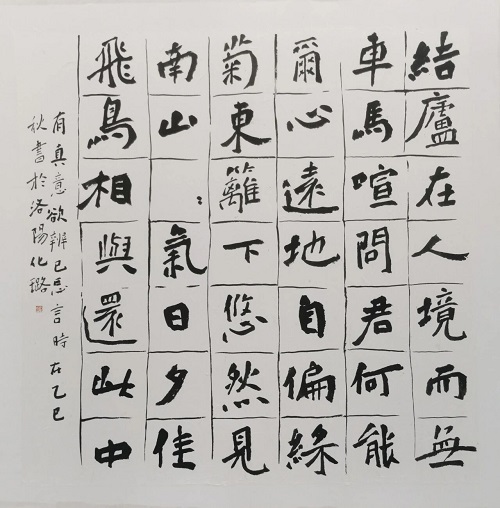 結廬在人境而無
車馬喧問君何能
爾心遠地自偏綵
菊東籬下悠然見
南山：氣日夕佳
飛鳥相與還此中
有真意欲辨已忘言時在乙巳
秋書於洛陽化璐